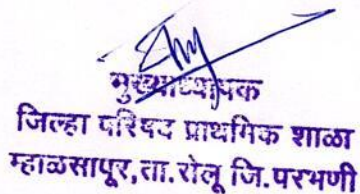 मुख्याध्यापक
जिल्हा परिषद प्राथमिक शाळा
म्हाळसापूर,ता.सेलू जि.परभणी